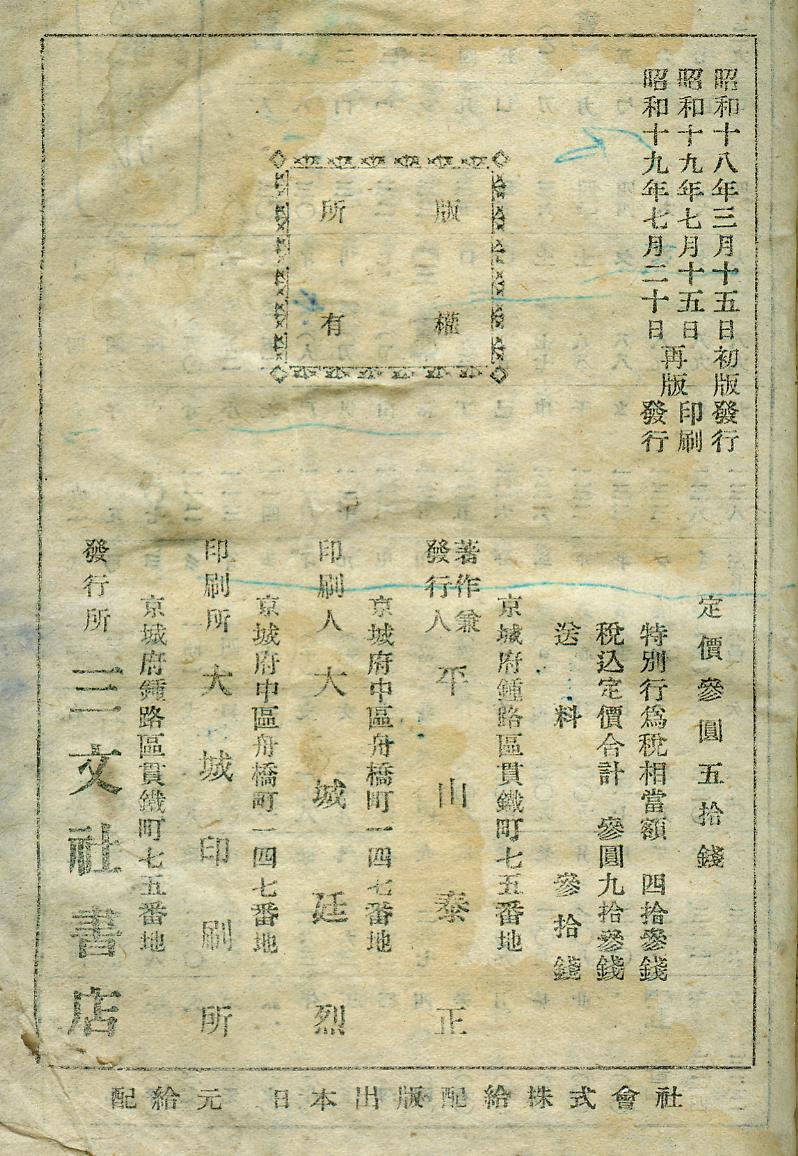 昭和十八年三月十五日初版發行
昭和十九年七月十五日再版印刷
昭和十九年七月二十日再版發行
版權
所有
定價參圓五拾錢
特別行爲稅相當額 四拾參錢
稅込定價合計 參圓九拾參錢
送料 參拾錢
京城府鍾路區貫鐵町七五番地
著作兼發行人 平山泰正
京城府中區舟橋町一四七番地
印刷人 大城廷烈
京城府中區舟橋町一四七番地
印刷所 大城印刷所
京城府鍾路區貫鐵町七五番地
發行所 三文社書店
配給元 日本出版配給株式會社